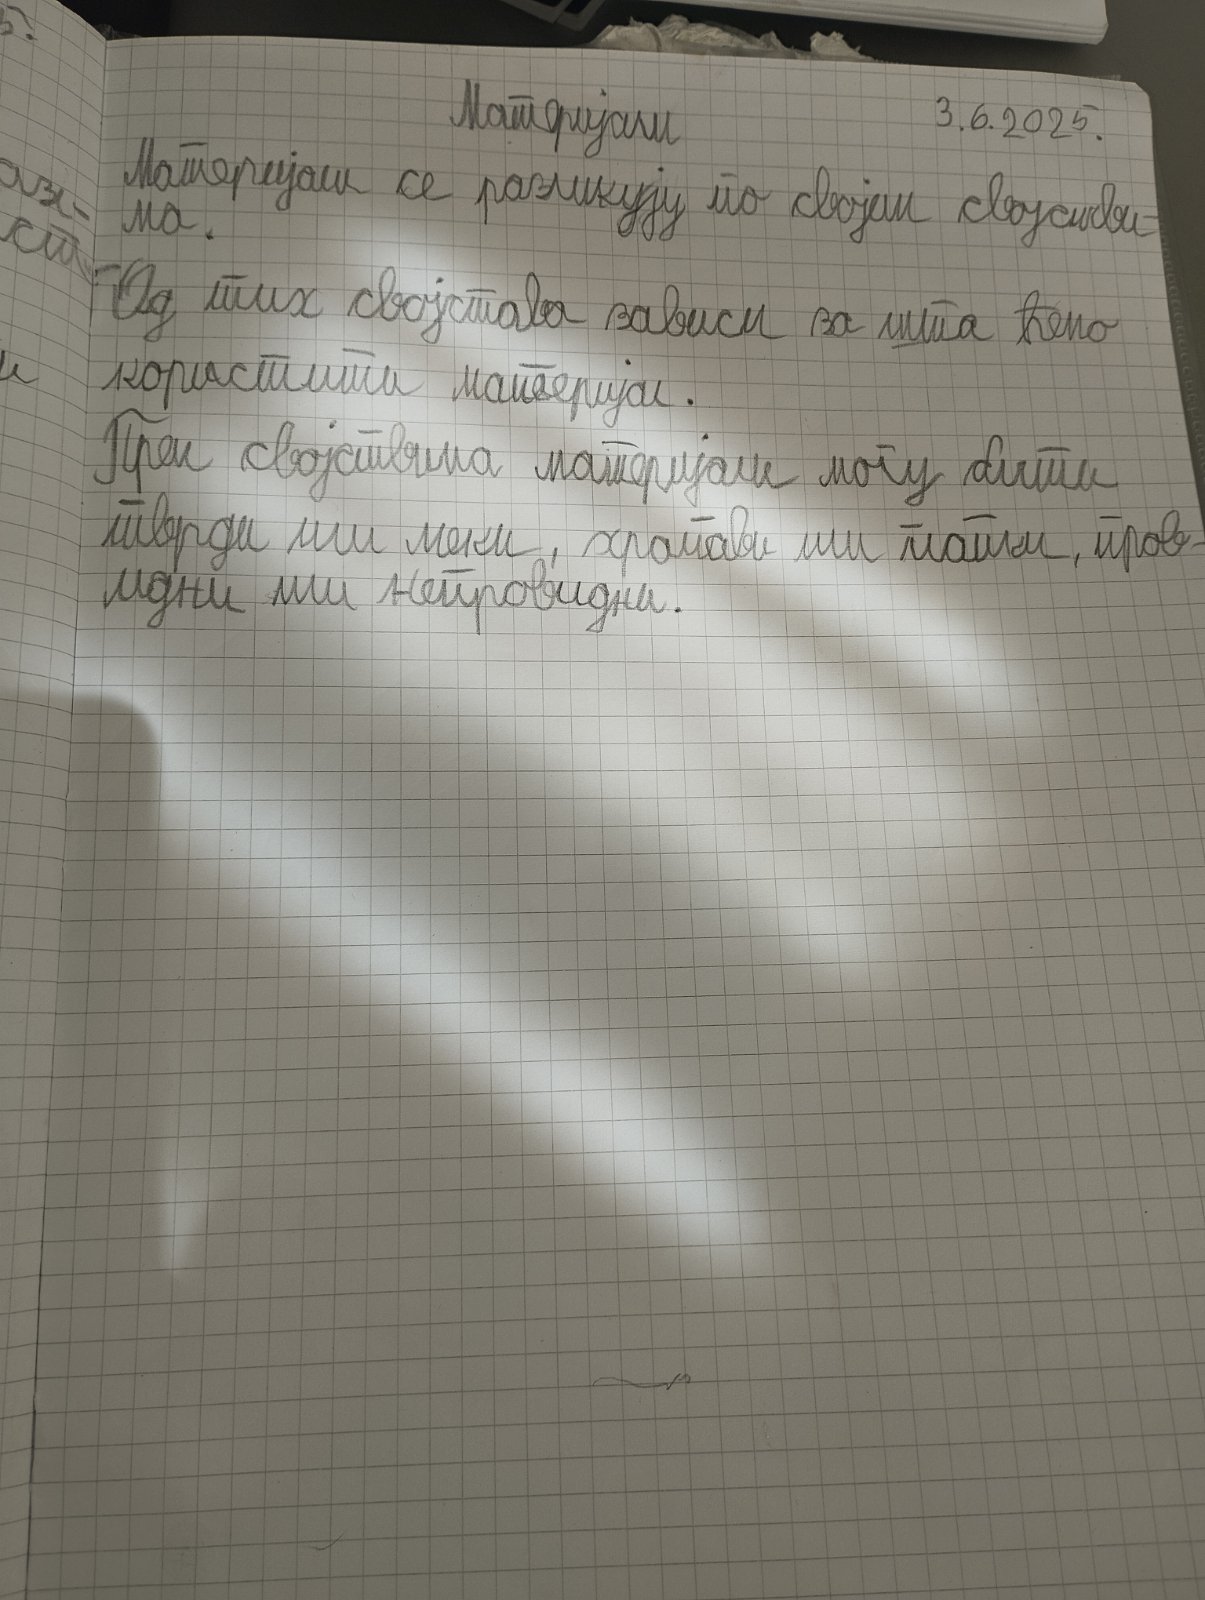 Материјали
3.6.2025.
Материјали се разликују по својим својстви-
ма.
Од тих својстава зависи за шта ћемо
користити материјал.
Према својствима материјали могу бити
тврди или меки, храпави или глатки, прови-
идни или непровидни.